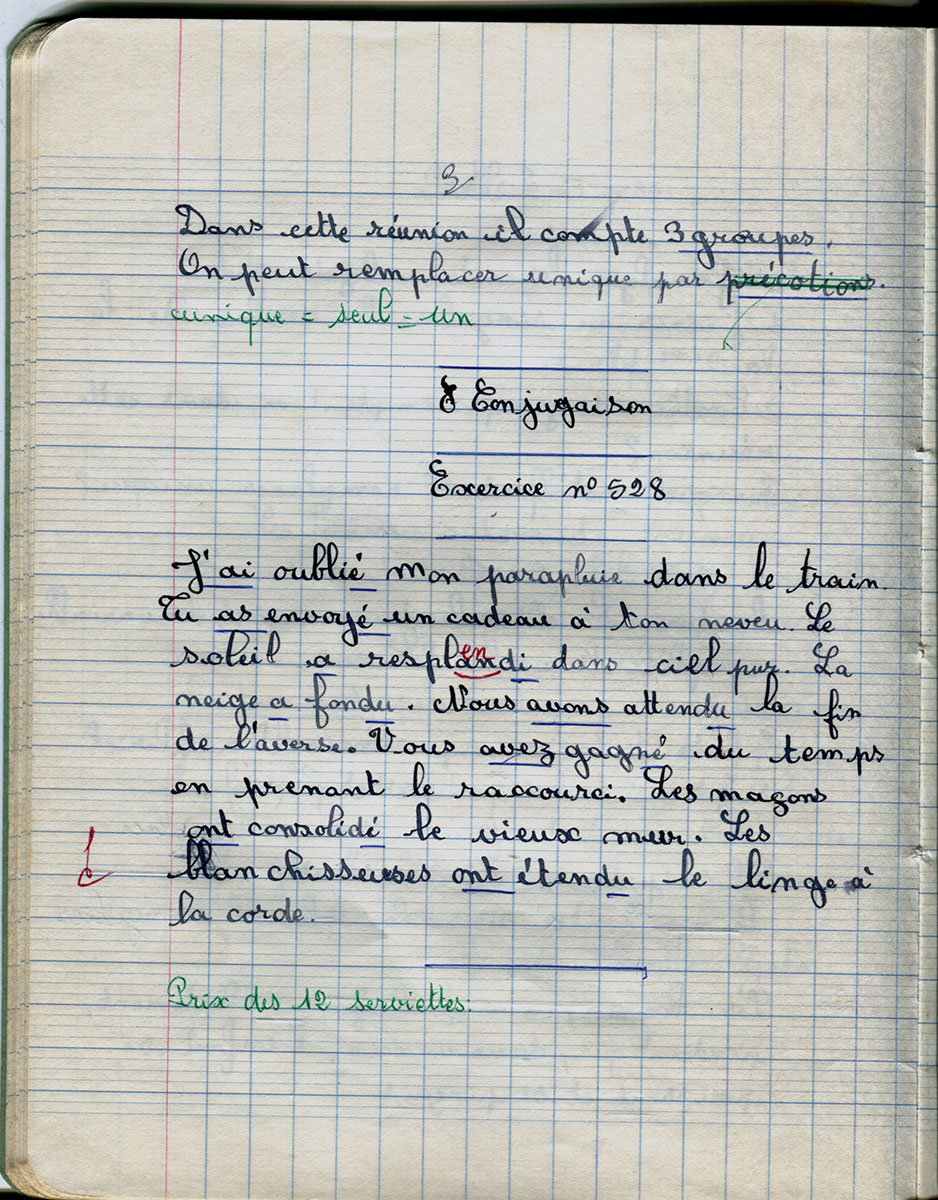 3
Dans cette réunion il compte 3 groupes.
On peut remplacer unique par précotions.
unique = seul = un
Conjugaison
Exercice n° 528
J'ai oublié mon parapluie dans le train.
Tu as envoyé un cadeau à ton neveu. Le
en
soleil a resplandi dans ciel pur. La
neige a fondu. Nous avons attendu la fin
de l'averse. Vous avez gagné du temps
en prenant le raccourci. Les maçons
ont consolidé le vieux mur. Les
blanchisseuses ont étendu le linge à
la corde.
Prix des 12 serviettes.